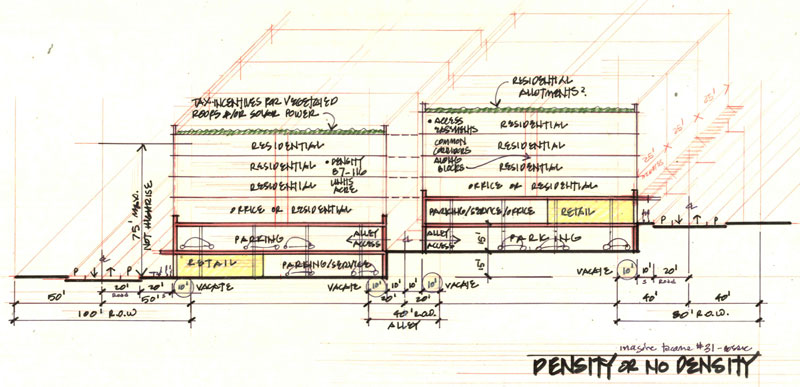 TAX INCENTIVES FOR VEGETATED
ROOFS &/OR SOLAR POWER
RESIDENTIAL
ALLOTMENTS?
RESIDENTIAL
RESIDENTIAL
• DENSITY
87-116
UNITS
ACRE
RESIDENTIAL
OFFICE OR RESIDENTIAL
PARKING
ALLEY
ACCESS
RETAIL
PARKING/SERVICE
75' MAX.
NOT HIGHRISE
• ACCESS
EASEMENTS
COMMON
CORRIDORS
ALONG
BLOCKS
RESIDENTIAL
RESIDENTIAL
RESIDENTIAL
OFFICE OR RESIDENTIAL
PARKING/SERVICE/OFFICE
RETAIL
ALLEY
ACCESS
PARKING
15'
15'
25' x 25' x 25'
P
P
20'
ROAD
20'
50'
50'
10'
VACATE
100' R.O.W
VACATE
10'
10'
10'
20'
20'
10'
VACATE
40' R.O.W.
ALLEY
P
P
VACATE
10'
10'
20'
S
ROAD
40'
40'
80' R.O.W.
imagine tacoma #31 -
DENSITY OR NO DENSITY